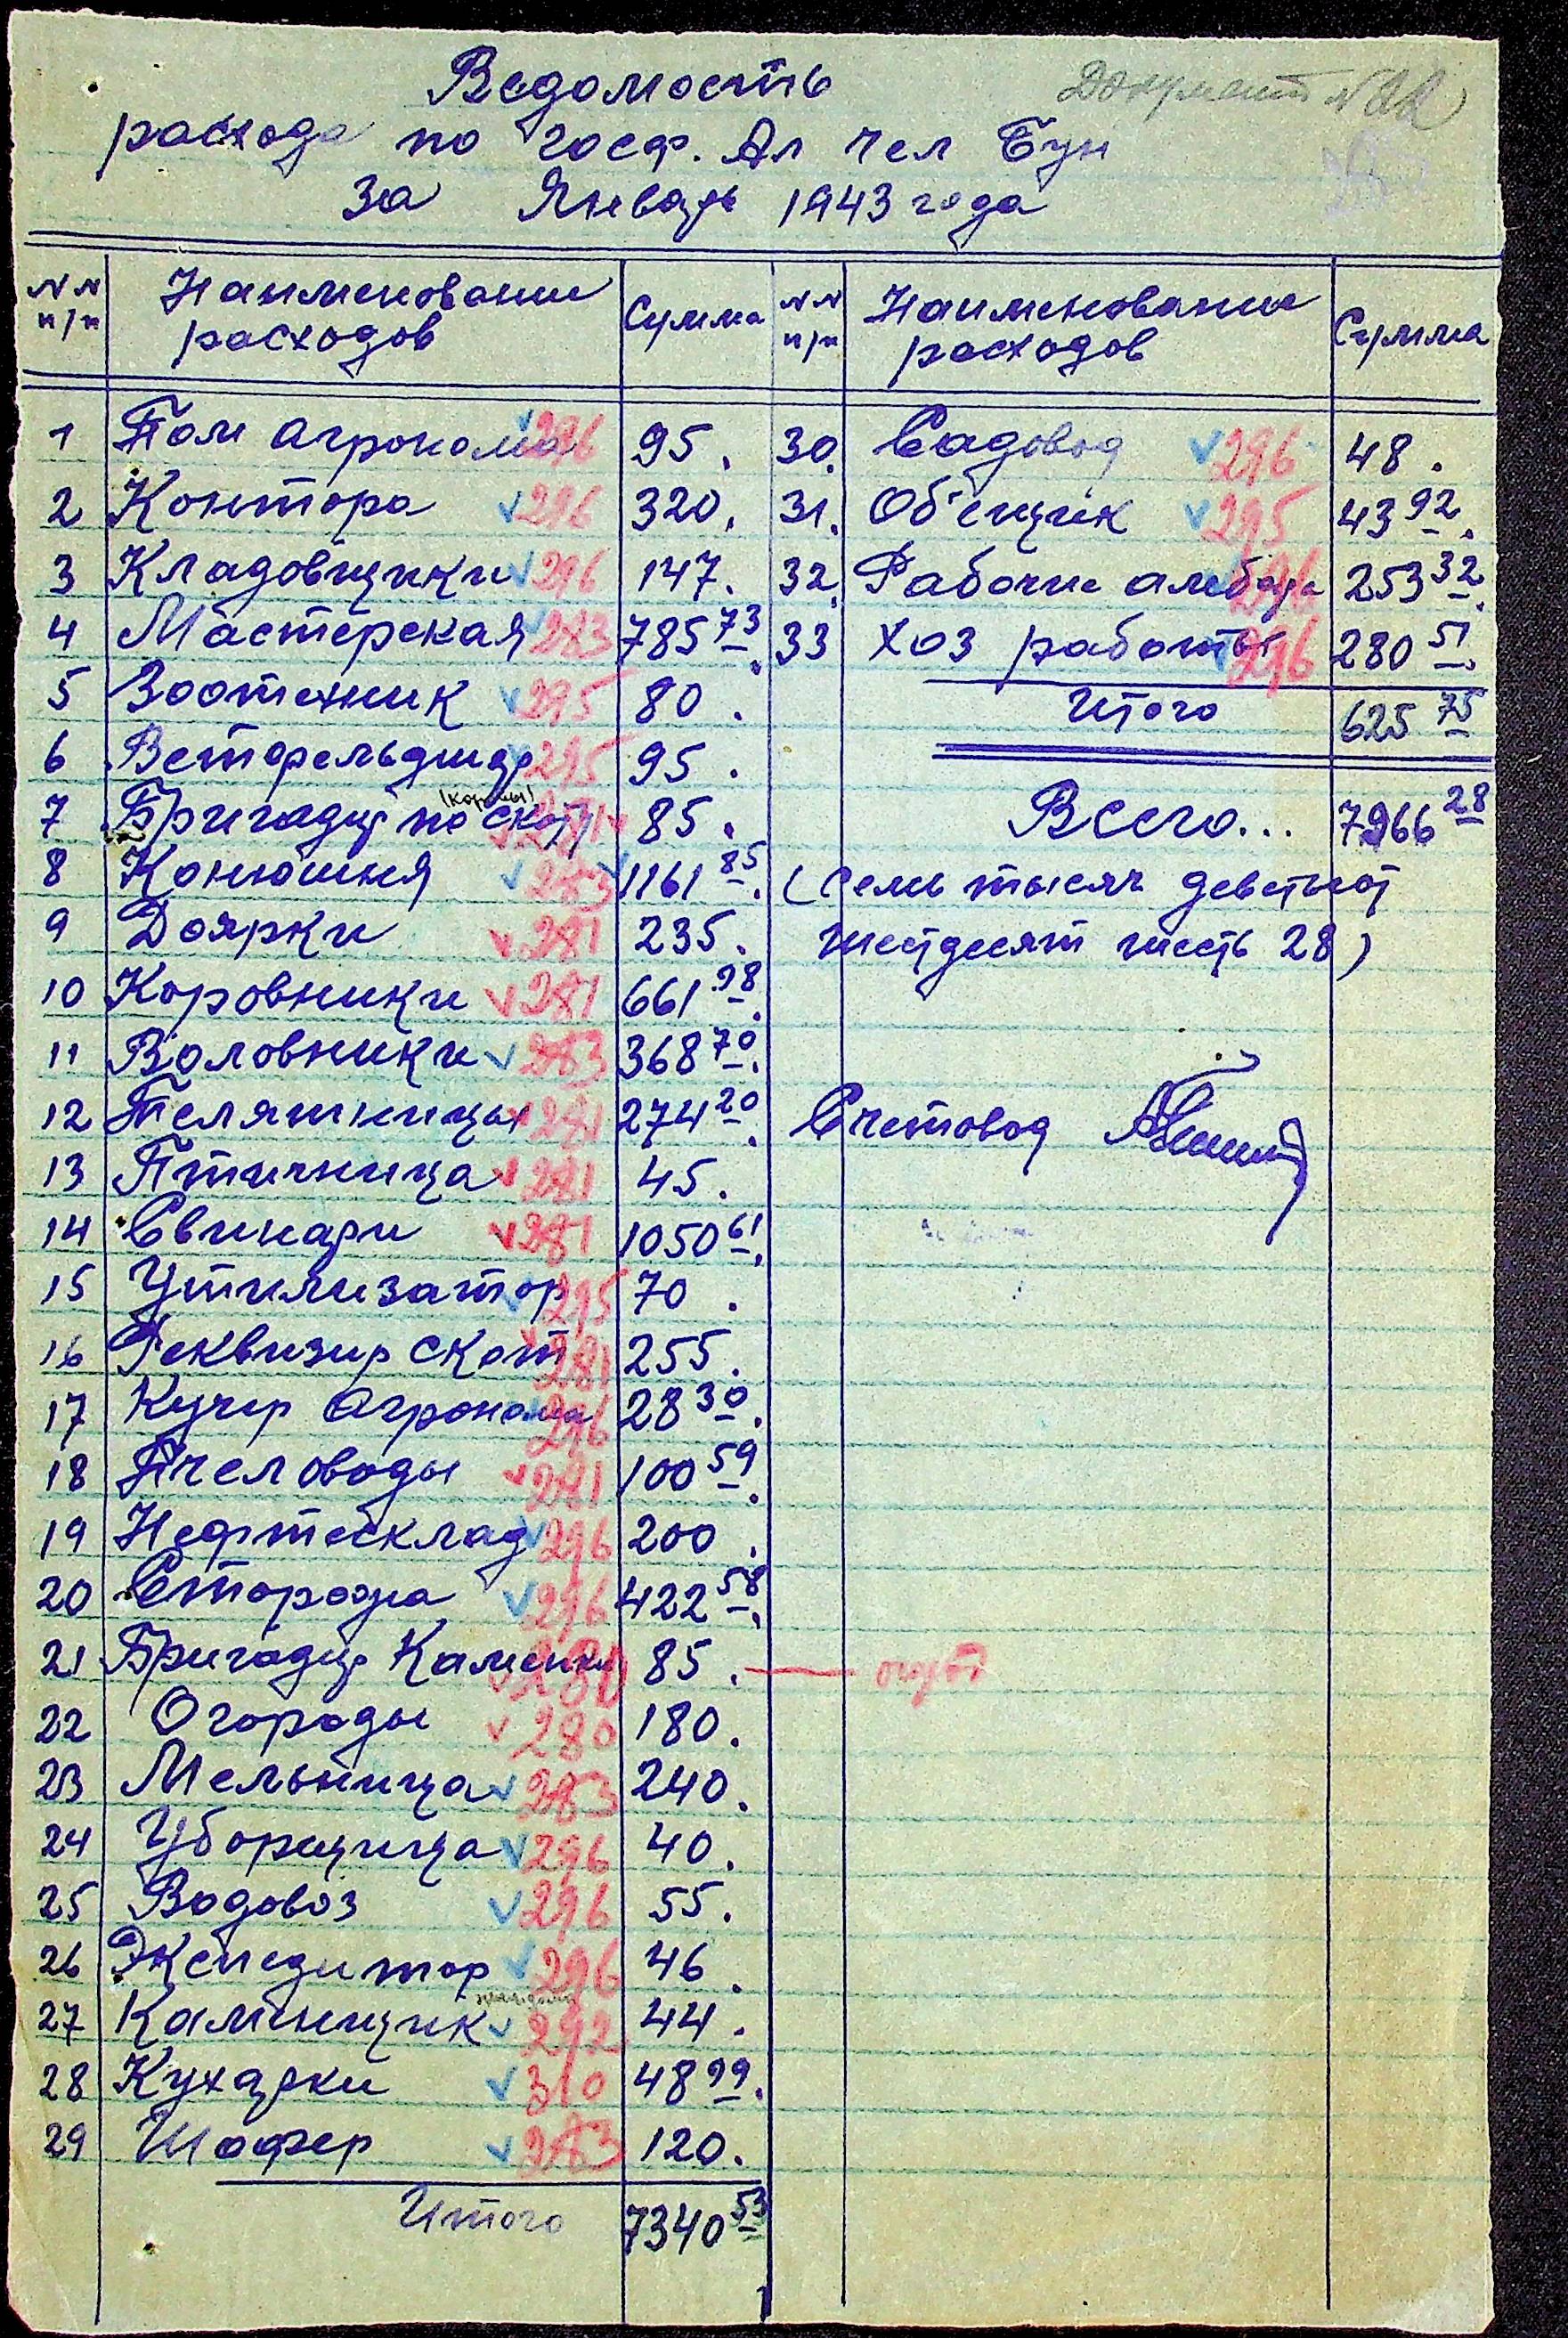 Документ №
Ведомость
расхода по госф. Ал Чел Бун
За Январь 1943 года
NN п/п Наименование расходов Сумма NN п/п Наименование расходов Сумма
1 Пом агронома 296 95.
2 Контора 296 320.
3 Кладовщики 296 147.
4 Мастерская 283 785 73
5 Зоотехник 295 80.
6 Ветфельдшер 295 95.
7 Бригадир по скоту (коровы) 281 85.
8 Конюшня 283 1161 85
9 Доярки 281 235.
10 Коровники 281 661 98
11 Воловники 283 368 70
12 Телятницы 281 274 20
13 Птичница 281 45.
14 Свинари 281 1050 61
15 Утилизатор 295 70.
16 Реквизир скот 281 255.
17 Кучер агронома 296 28 30
18 Пчеловоды 281 100 59
19 Нефтесклад 296 200.
20 Сторожа 296 422 58
21 Бригадир Каменки 280 85.
22 Огороды 280 180.
23 Мельница 283 240.
24 Уборщица 296 40.
25 Водовоз 296 55.
26 Экспедитор 296 46.
27 Каминщик 292 44.
28 Кухарки 310 48 99
29 Шофер 283 120.
Итого 7340 53
30. Садовод 296 48.
31. Об'ещик 295 43 92
32. Рабочие амбара 296 253 32
33 Хоз работы 296 280 51
Итого 625 75
Всего... 7966 28
(Семь тысяч деветьсот
шестдесят шесть 28)
Счетовод